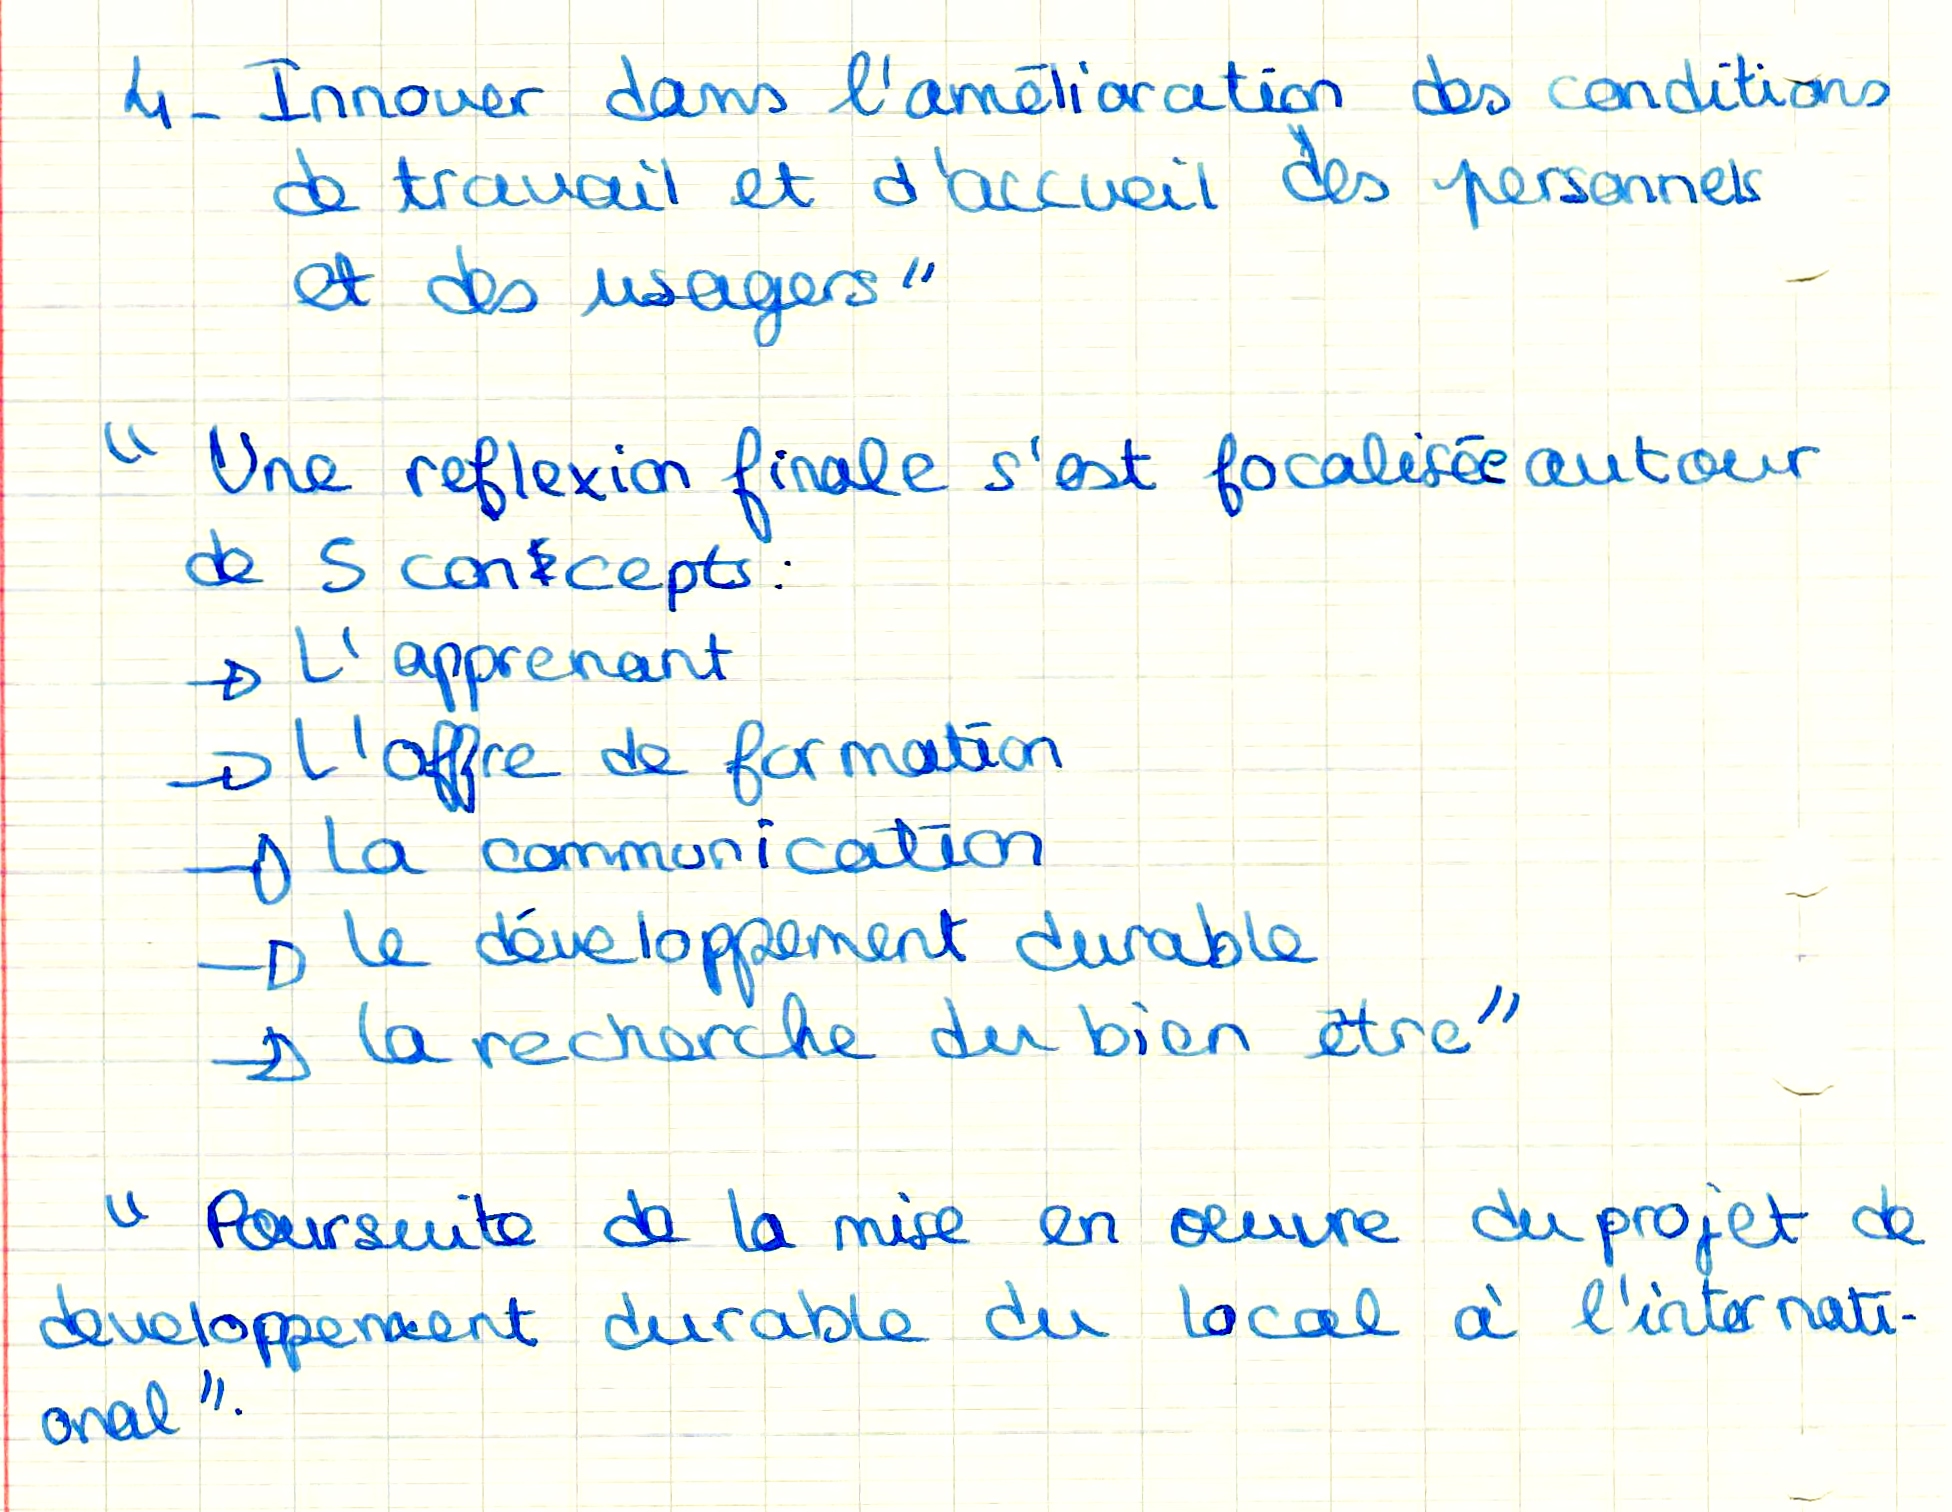 4- Innover dans l'amélioration des conditions
de travail et d'accueil des personnels
et des usagers"
" Une reflexion finale s'est focalisée autour
de 5 concepts :
→ L'apprenant
→ L'offre de formation
→ La communication
→ le développement durable
→ la recherche du bien être"
" Poursuite de la mise en oeuvre du projet de
developpement durable du local à l'internati-
onal".